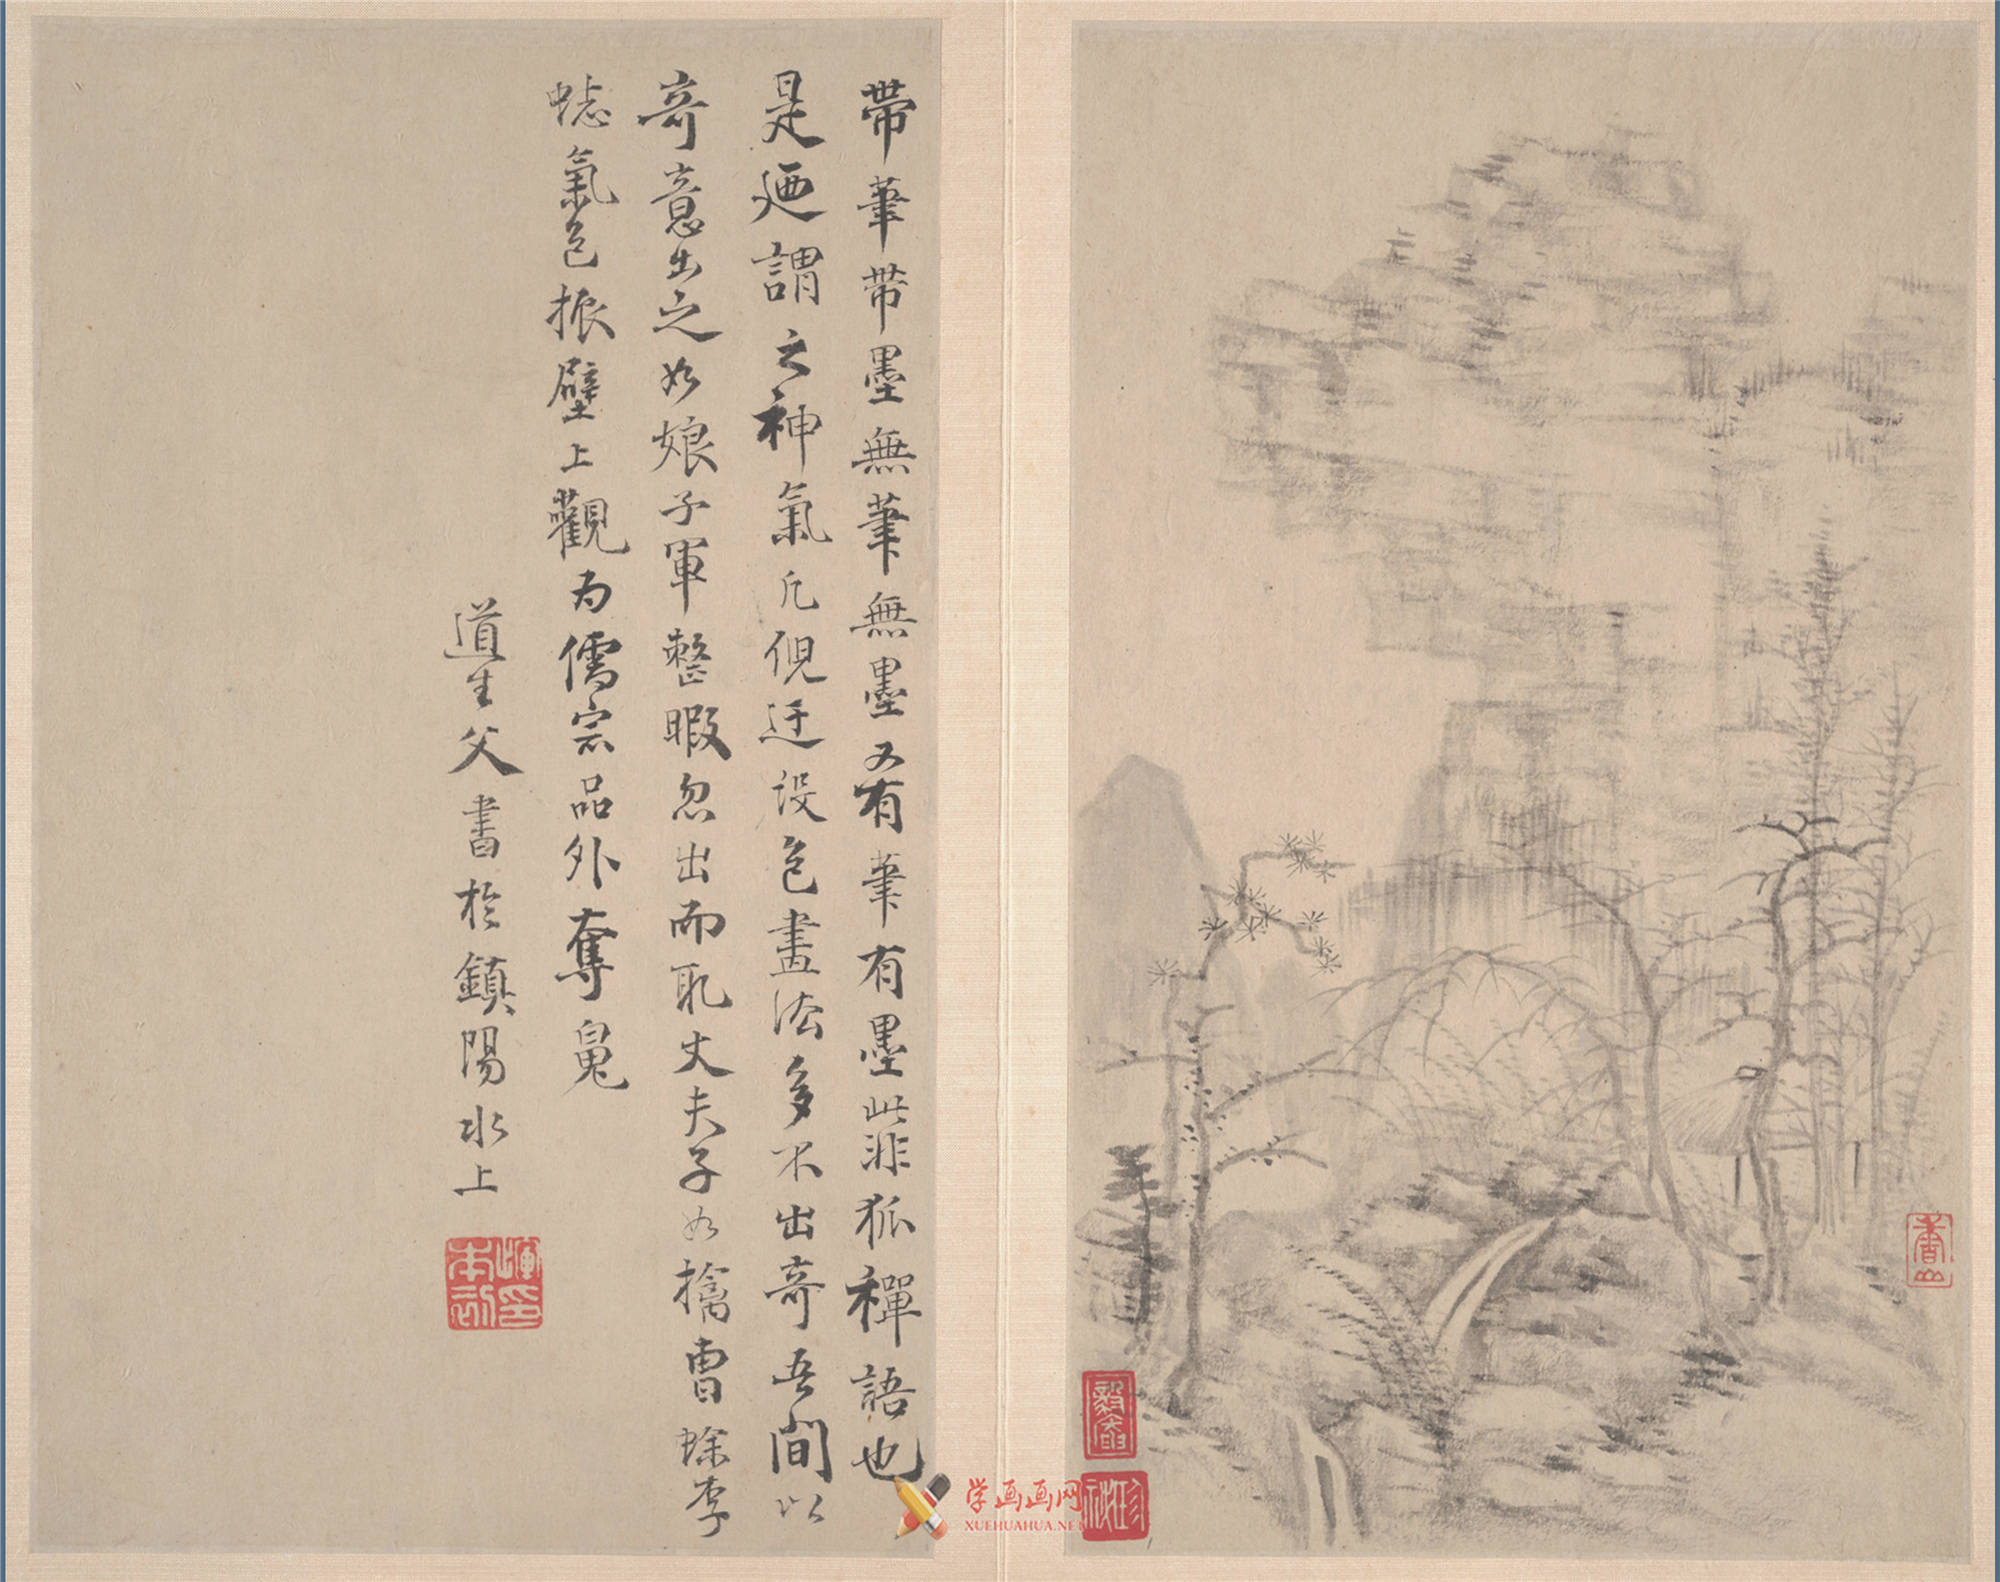 帶筆帶墨無筆無墨又有筆有墨此非狐禪語也
是迺謂之神氣凡倪迂設色畫法多不出奇吾間以
奇意出之如娘子軍整暇忽出而耻丈夫子如擒曹蜍李
蜍氣色振壁上觀為儒宗品外奪鬼
道生父書於鎮陽水上
香山
学画画网
XUEHUAHUA.NET